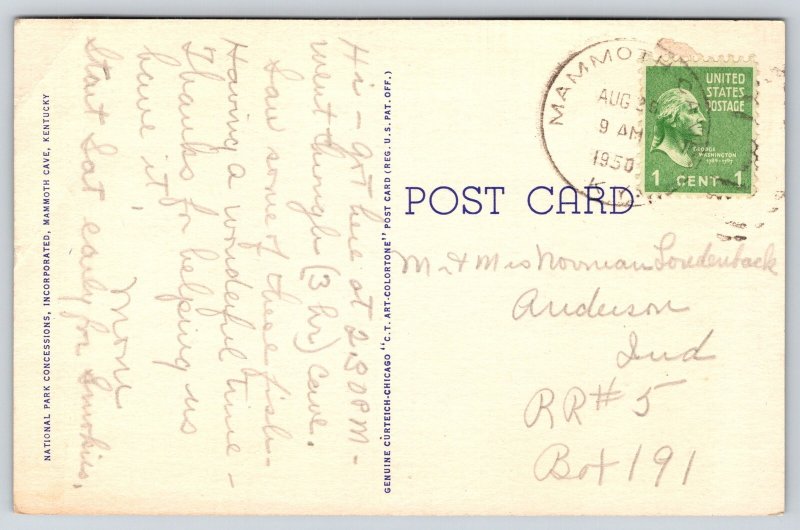 Hi - got here at 2,30 P.M -
went through (3 hr) cave.
Saw some of these fish -
Having a wonderful time -
Thanks for helping us
have it,
Mom
Start Sat early for Smokies,
NATIONAL PARK CONCESSIONS, INCORPORATED, MAMMOTH CAVE, KENTUCKY
GENUINE CURTEICH-CHICAGO "C.T. ART-COLORTONE" POST CARD (REG. U.S. PAT. OFF.)
POST CARD
MAMMOTH
AUG
9 AM
1950
UNITED
STATES
POSTAGE
GEORGE
WASHINGTON
1789-1797
1 CENT 1
Mr & Mrs Norman Loudenback
Anderson
Ind
RR# 5
Box 191